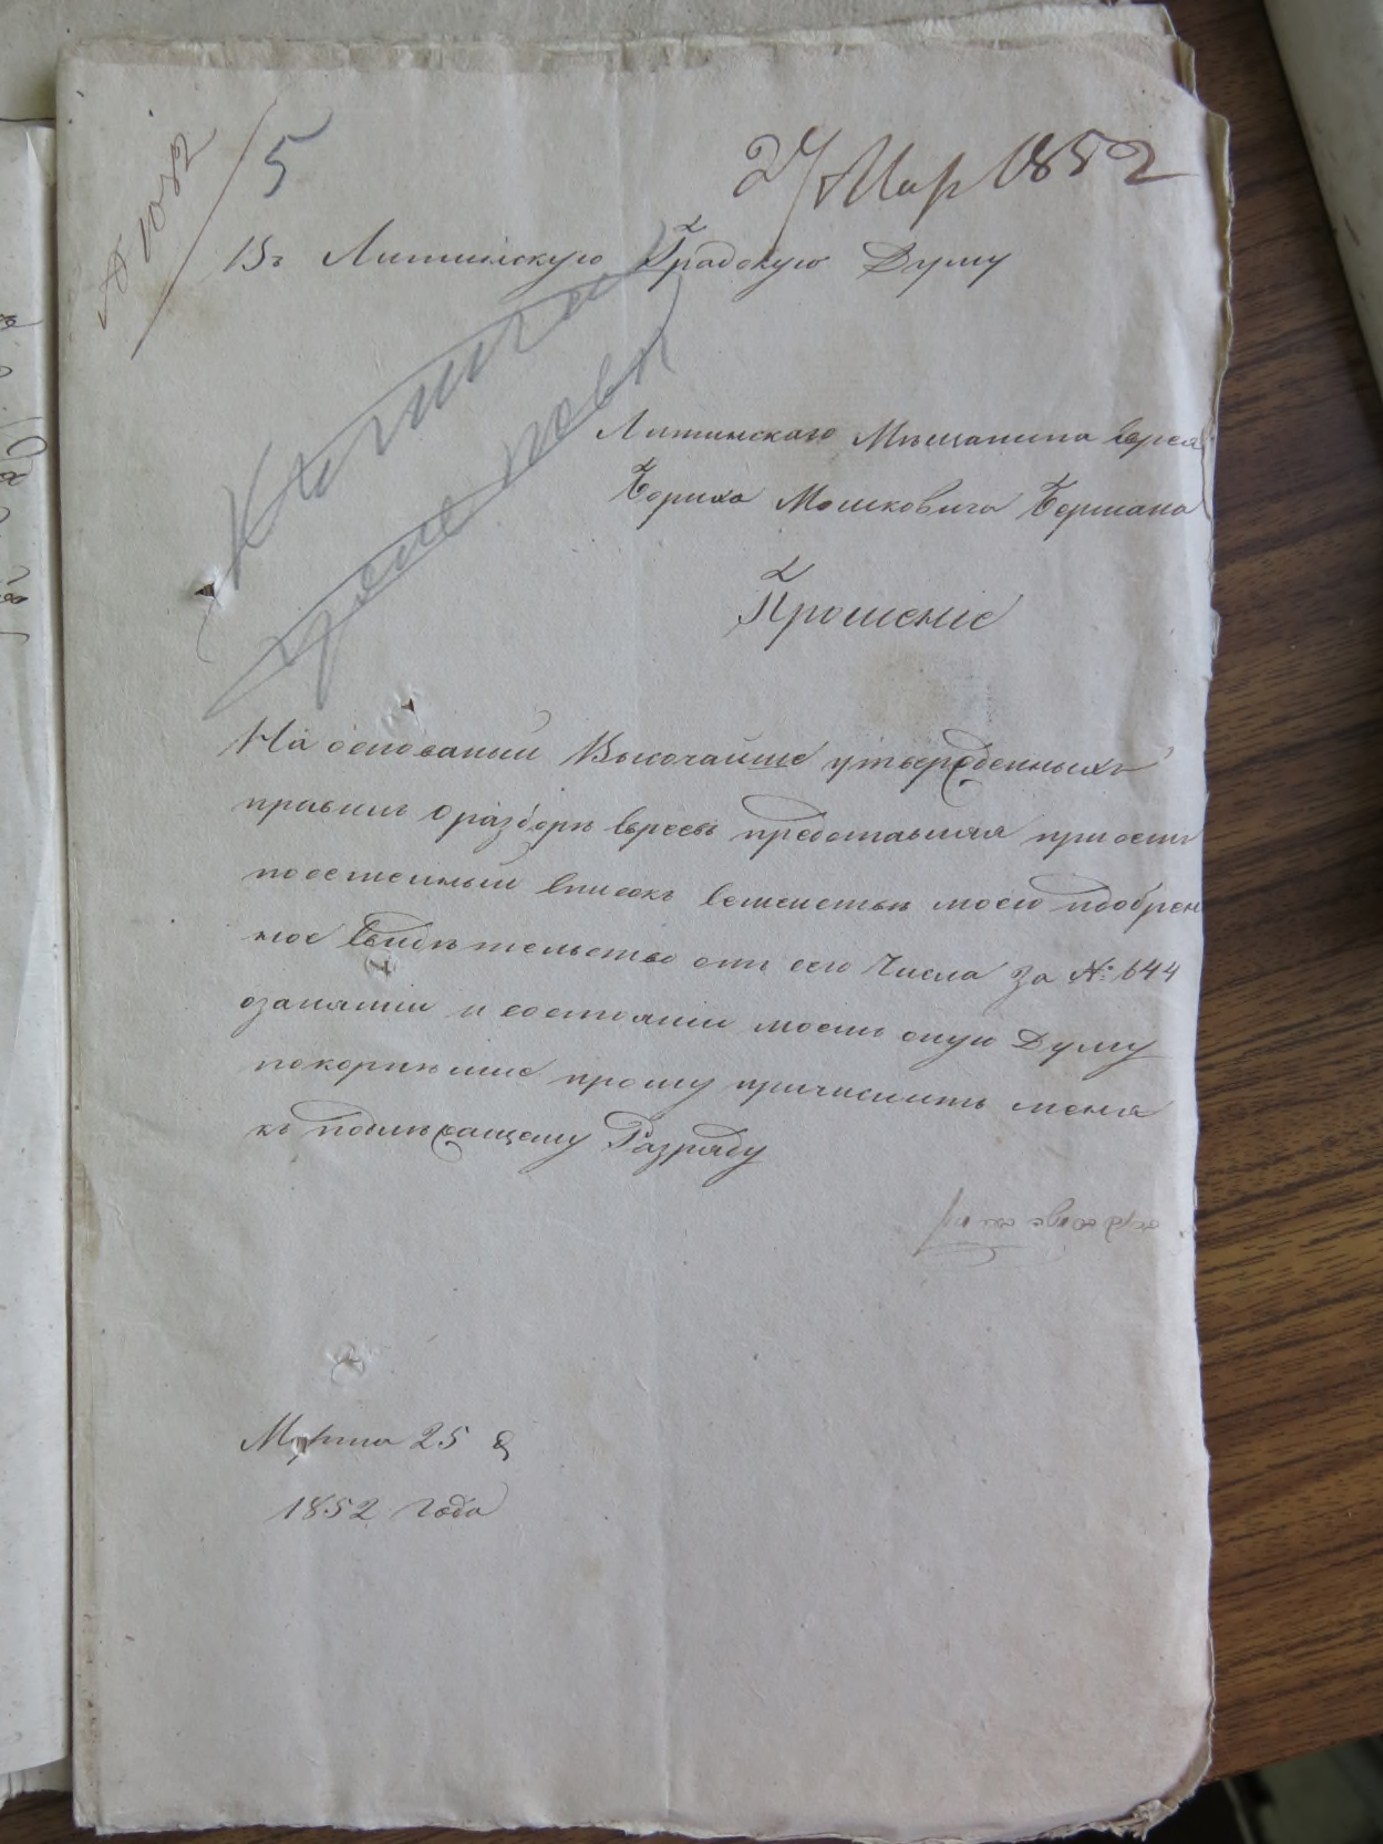 № 1082
5
27 Мар 1852
Въ Литинскую Градскую Думу
Литинскаго Мѣщанина Еврея
Бориха Мошковича Бермана
Прошеніе
На основаніи Высочайше утвержденныхъ
правилъ о разборѣ Евреевъ представляя при семъ
посемейный списокъ Семейства моего
ное Свидѣтельство отъ сего Числа за № 644
о занятіи и состояніи моемъ оную Думу
покорнѣйше прошу причислить меня
къ подлежащему Разряду
Марта 25 д
1852 года